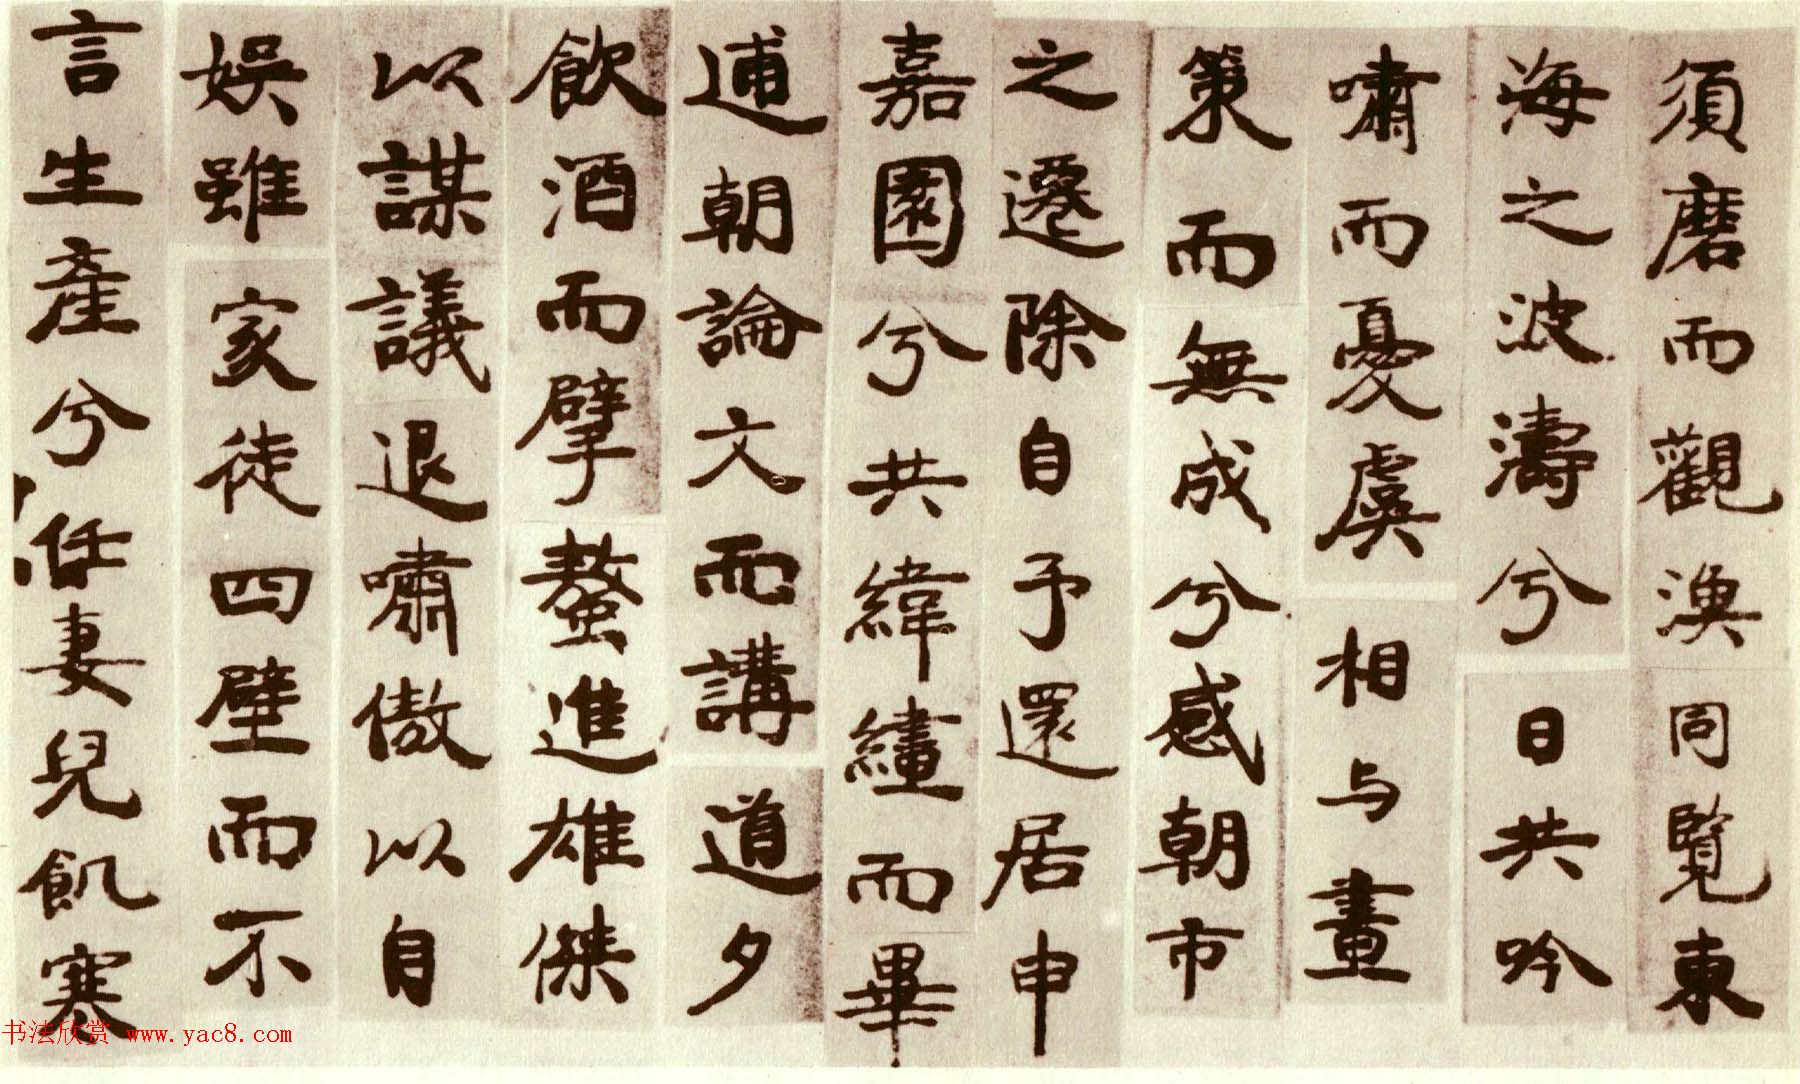 須磨而觀漁同覽東
海之波濤兮日共吟
嘯而憂虞相与畫
策而無成兮感朝市
之遷除自予還居申
嘉園兮共緯繣而畢
逋朝論文而講道夕
飲酒而擘螯進雄傑
以謀議退嘯傲以自
娛雖家徒四壁而不
言生產兮任妻兒飢寒
书法欣赏 www.yac8.com